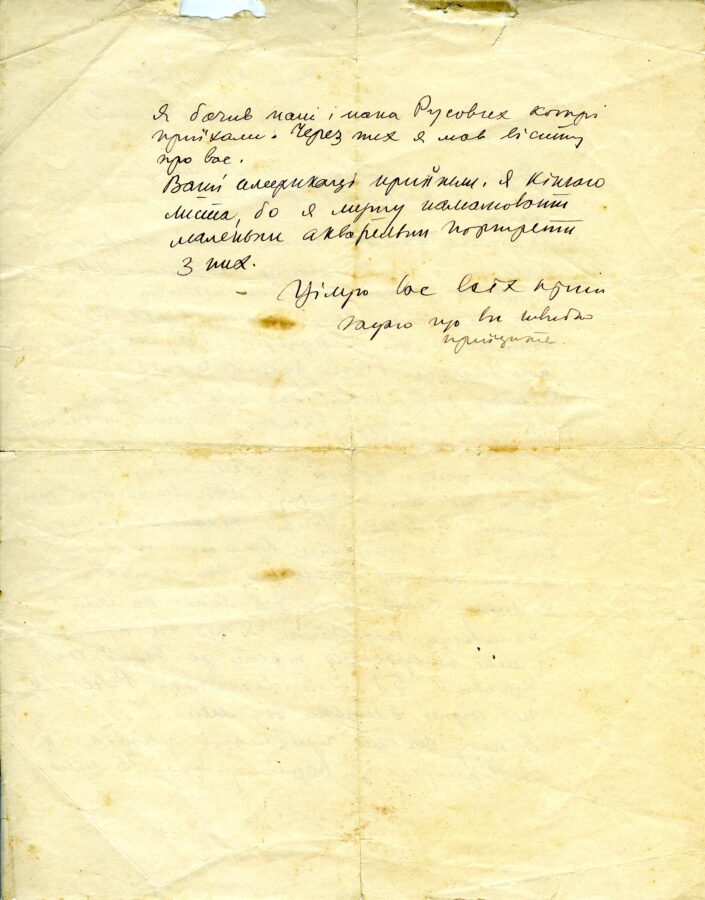 Я бачив пані і пана Русових котрі
приїхали. Через них я мав вістку
про вас.
Ваші американці прийшли. Я кінчаю
листа, бо я мушу намалювати
маленьки акварельни портрети
з них.
Цілую вас всіх
що ви швидко
приїдите.